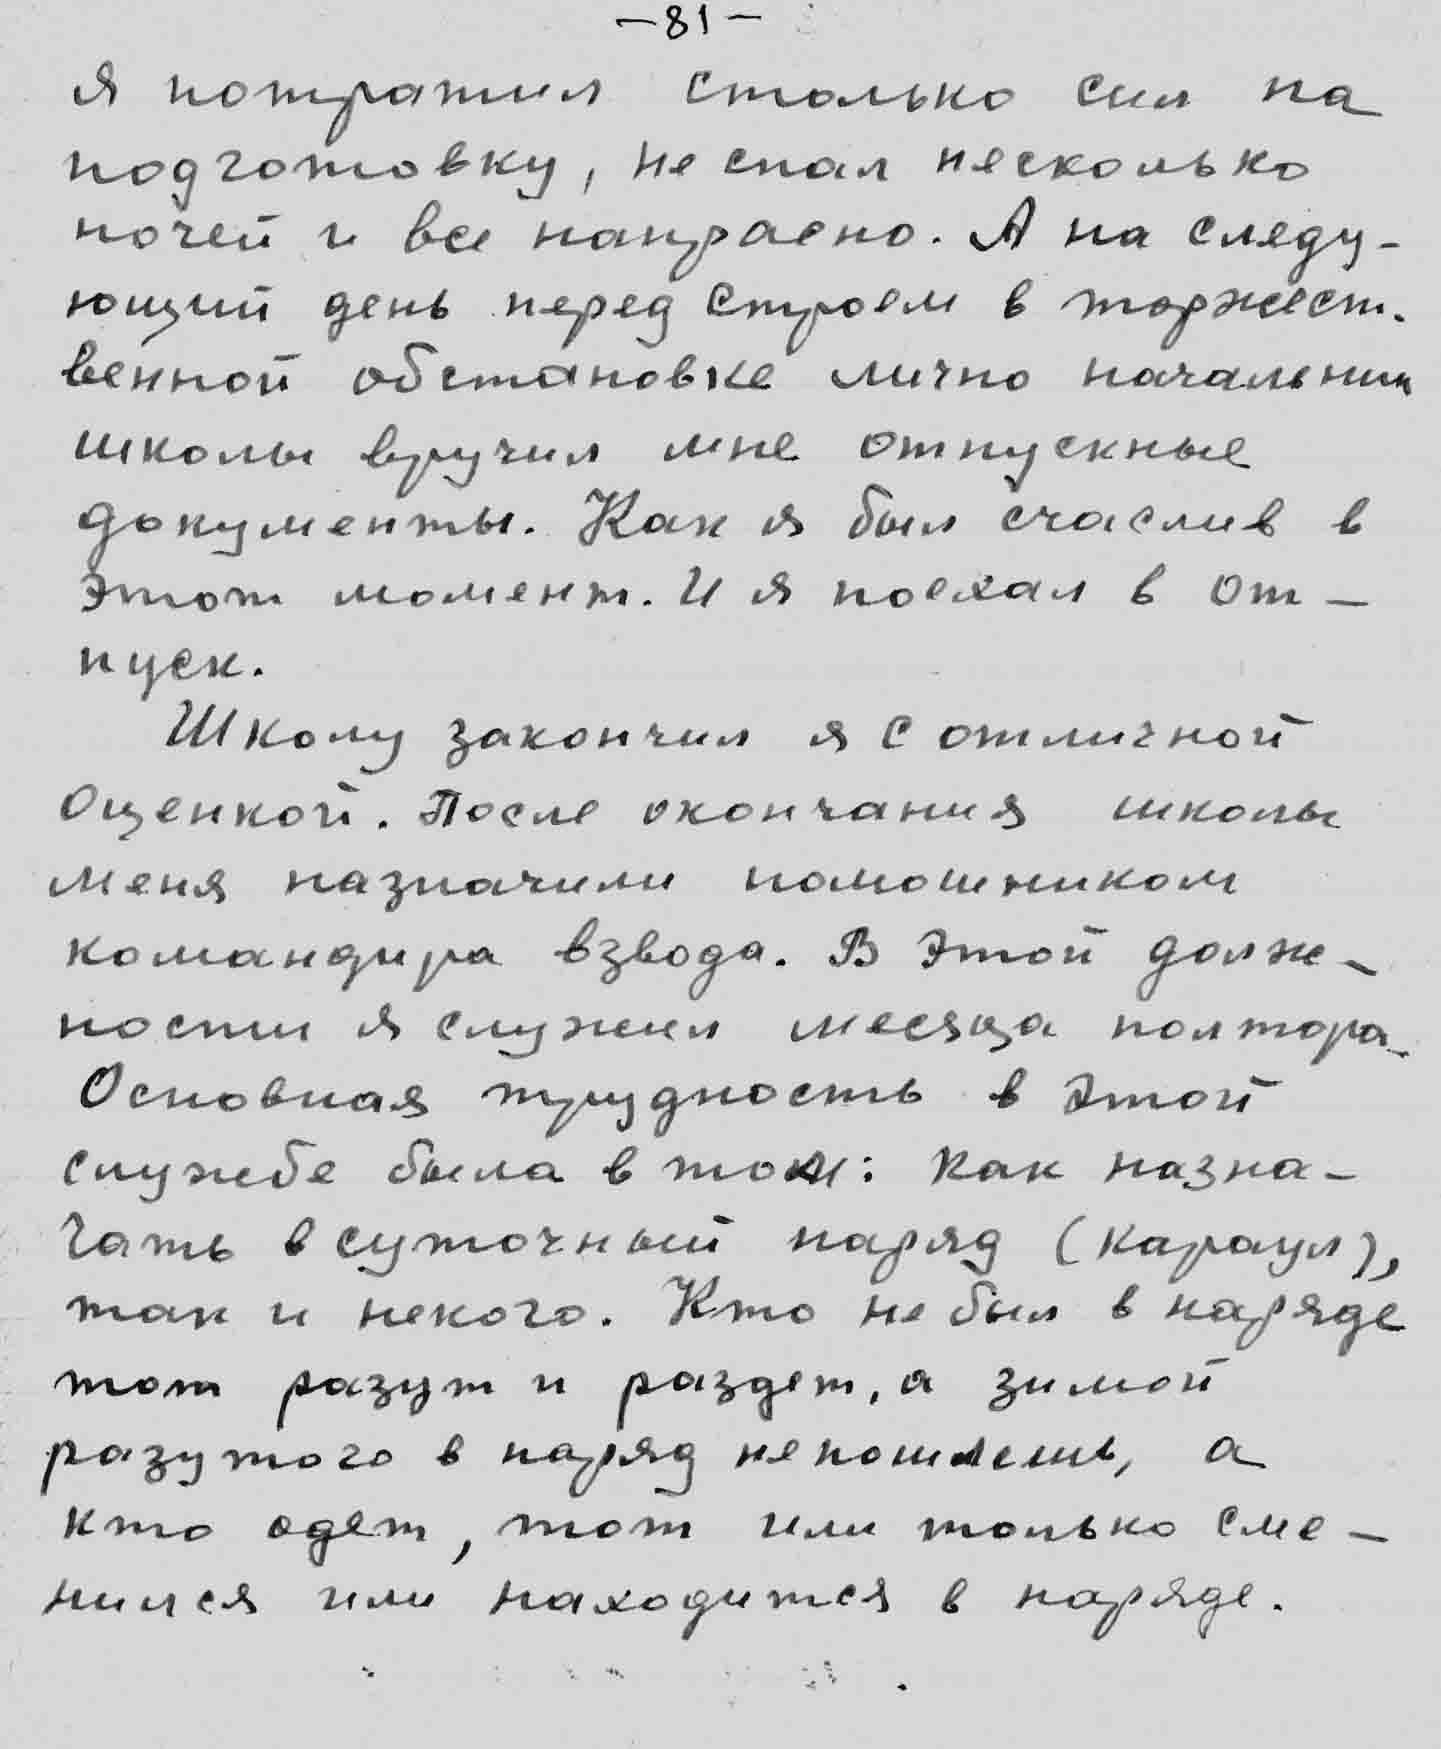 –81–
я потратил столько сил на
подготовку, не спал несколько
ночей и все напрасно. А на следу-
ющий день перед строем в торжест-
венной обстановке лично начальник
школы вручил мне отпускные
документы. Как я был счаслив в
этот момент. И я поехал в от-
пуск.
Школу закончил я с отличной
оценкой. После окончания школы
меня назначили помошником
командира взвода. В этой долж-
ности я служил месяца полтора.
Основная трудность в этой
службе была в том: как назна-
чать в суточный наряд (караул),
так и некого. Кто не был в наряде
тот разут и раздет, а зимой
разутого в наряд непошлешь, а
кто одет, тот или только сме-
нился или находится в наряде.